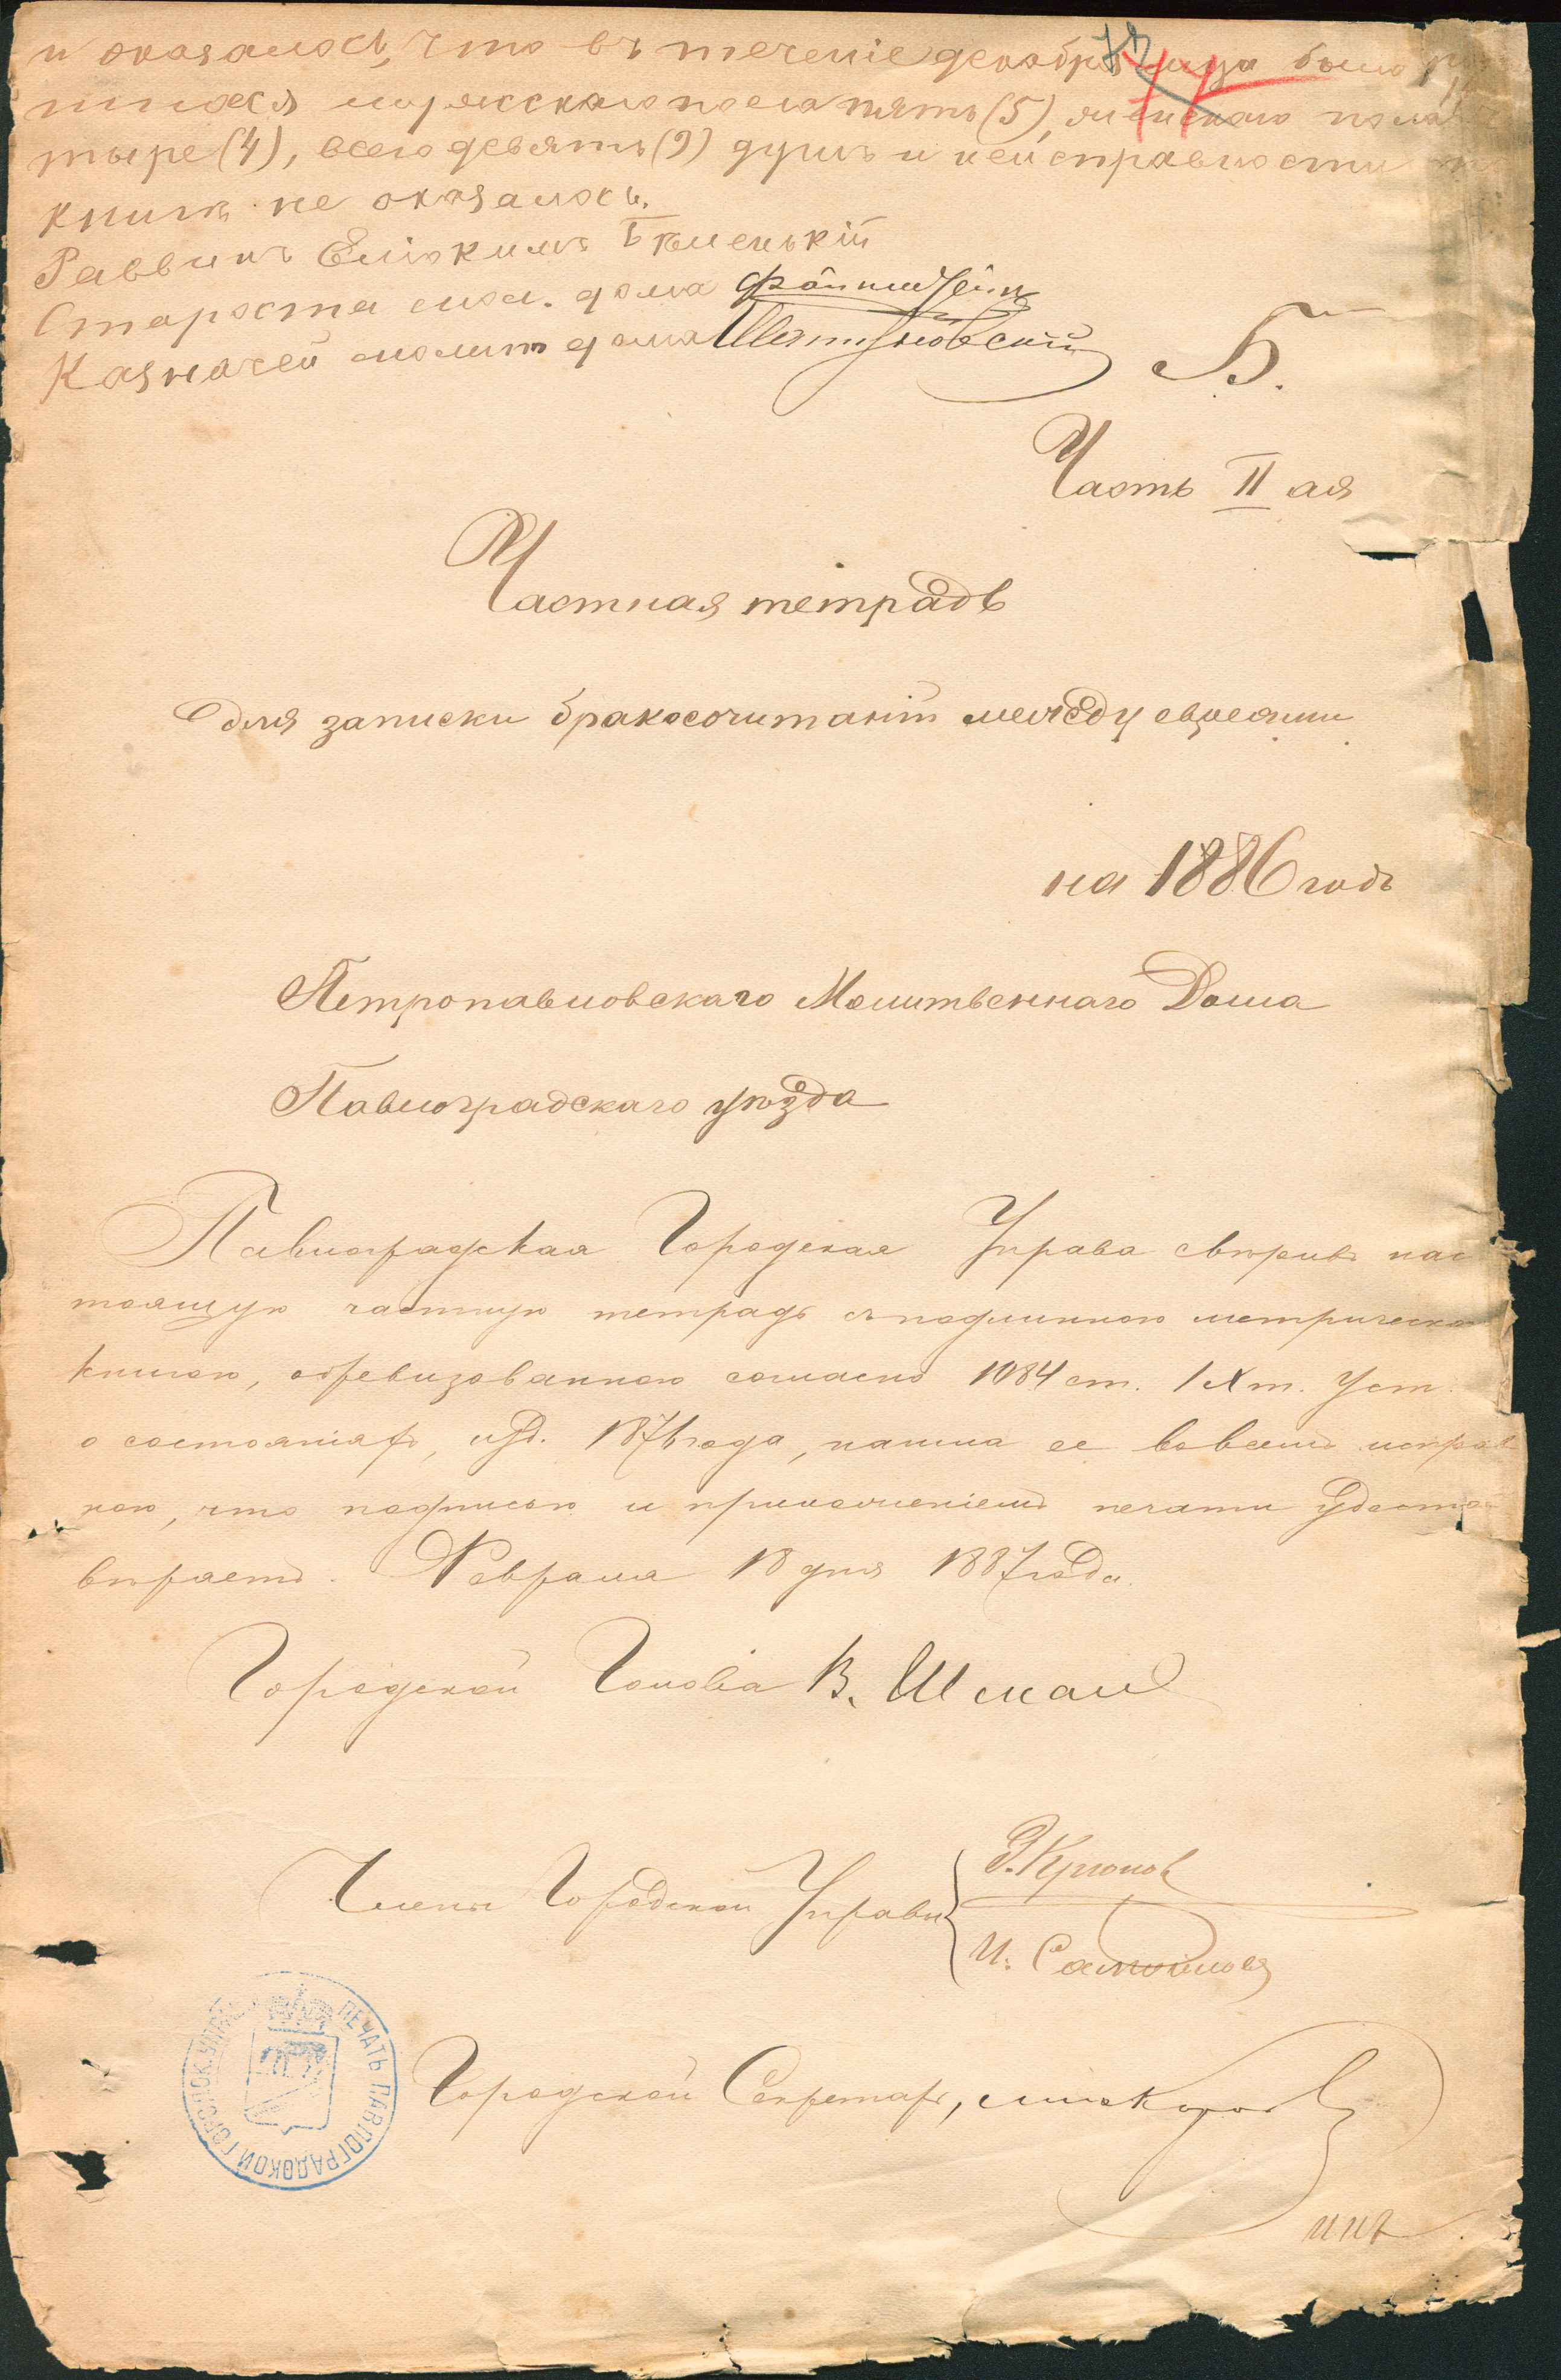 и оказалось, что въ теченіе декабря м-ца было
мужескаго пола пять (5), женскаго пола
тыре (4), всего девять (9) душъ и неисправности
книгѣ не оказалось.
Раввинъ Еліокимъ Бѣленькій
Староста мол. дома Файнштейн
Казначей молит дома
Б.
Часть II ая
Частная тетрадь
для записки бракосочитаній между евреями
на 1886 годъ
Петропавловскаго Молитвеннаго Дома
Павлоградскаго уѣзда
Павлоградская Городская Управа свѣривъ нас
тоящую частную тетрадь съ подлинною метрическо
книгою, обревизованною согласно 1084 ст. IX т. Уст.
о состояніяхъ, изд. 1876 года, нашла ее вовсемъ исправ
ною, что подписью и приложеніемъ печати удосто
вѣряетъ. Февраля 18 дня 1887 года.
Городской Голова В. Шалман
Члены Городской Управы
Э. Крюков
И. Самойлов
ПЕЧАТЬ ПАВЛОГРАДСКОЙ ГОРОДСК. УПРАВЫ
Городской Секретарь,